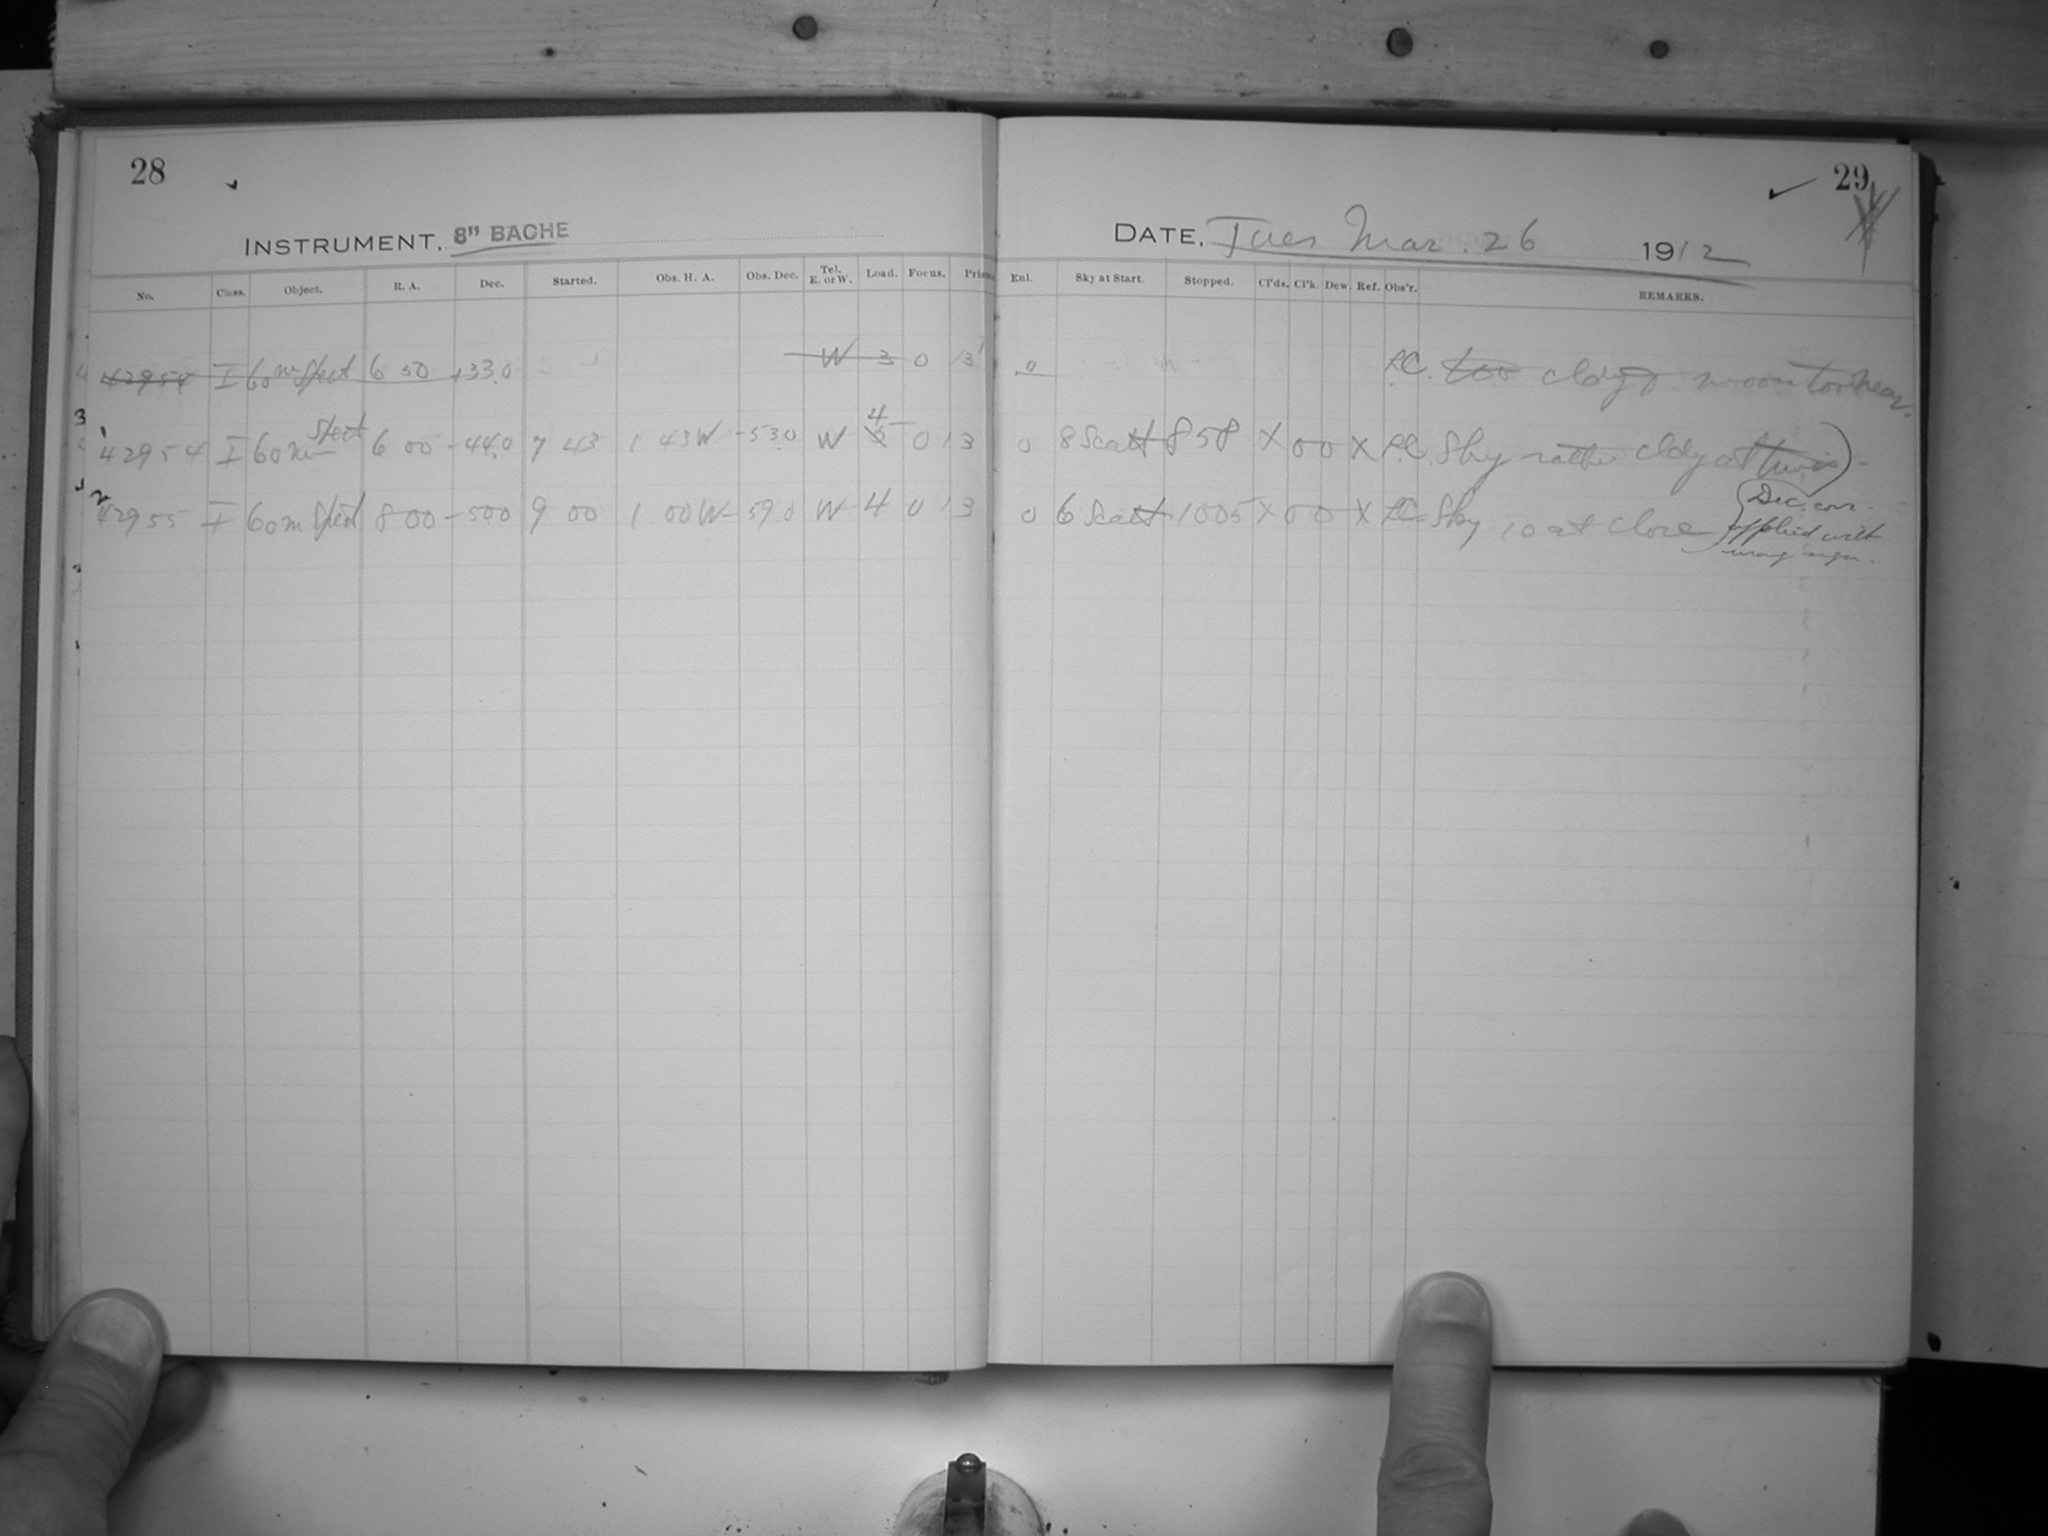 28
29
INSTRUMENT, 8" BACHE
DATE, Tues Mar. 26 1912
No. Class. Object. R. A. Dec. Started. Obs. H. A. Obs. Dec. Tel. E. or W. Load. Focus. Prism Enl. Sky at Start. Stopped. Cl'ds. Cl'k. Dew. Ref. Obs'r. REMARKS.
42954 I 60m Spect 6 50 +33.0 W 3 0 13 0 too cldy moon too near.
42954 I 60m Spect 6 00 -44.0 7 43 1 43W -53.0 W 4 0 13 0 8 Scatt 8 58 X 0 0 X Sky rather cldy at
42955 I 60m Spect 8 00 -50.0 9 00 1 00W -59.0 W 4 0 13 0 6 Scatt 10 05 X 0 0 X Sky 10 at close
Dec. corr.
applied with
wrong sign.